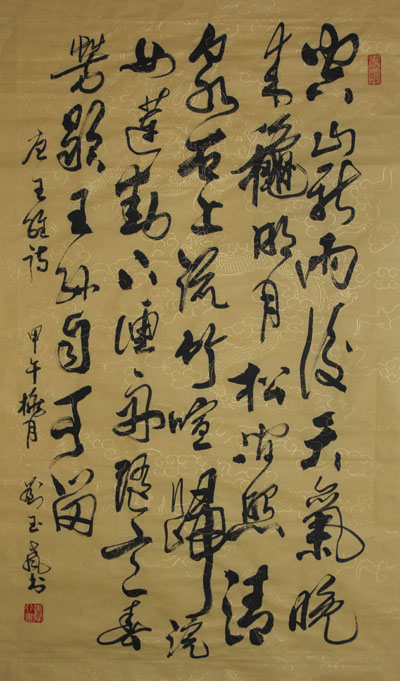 空山新雨後天氣晚
來穐明月松間照清
泉石上流竹喧歸浣
女蓮動下漁舟隨意春
芳歇王孫自可留
唐王維詩 甲午 月 劉玉 书